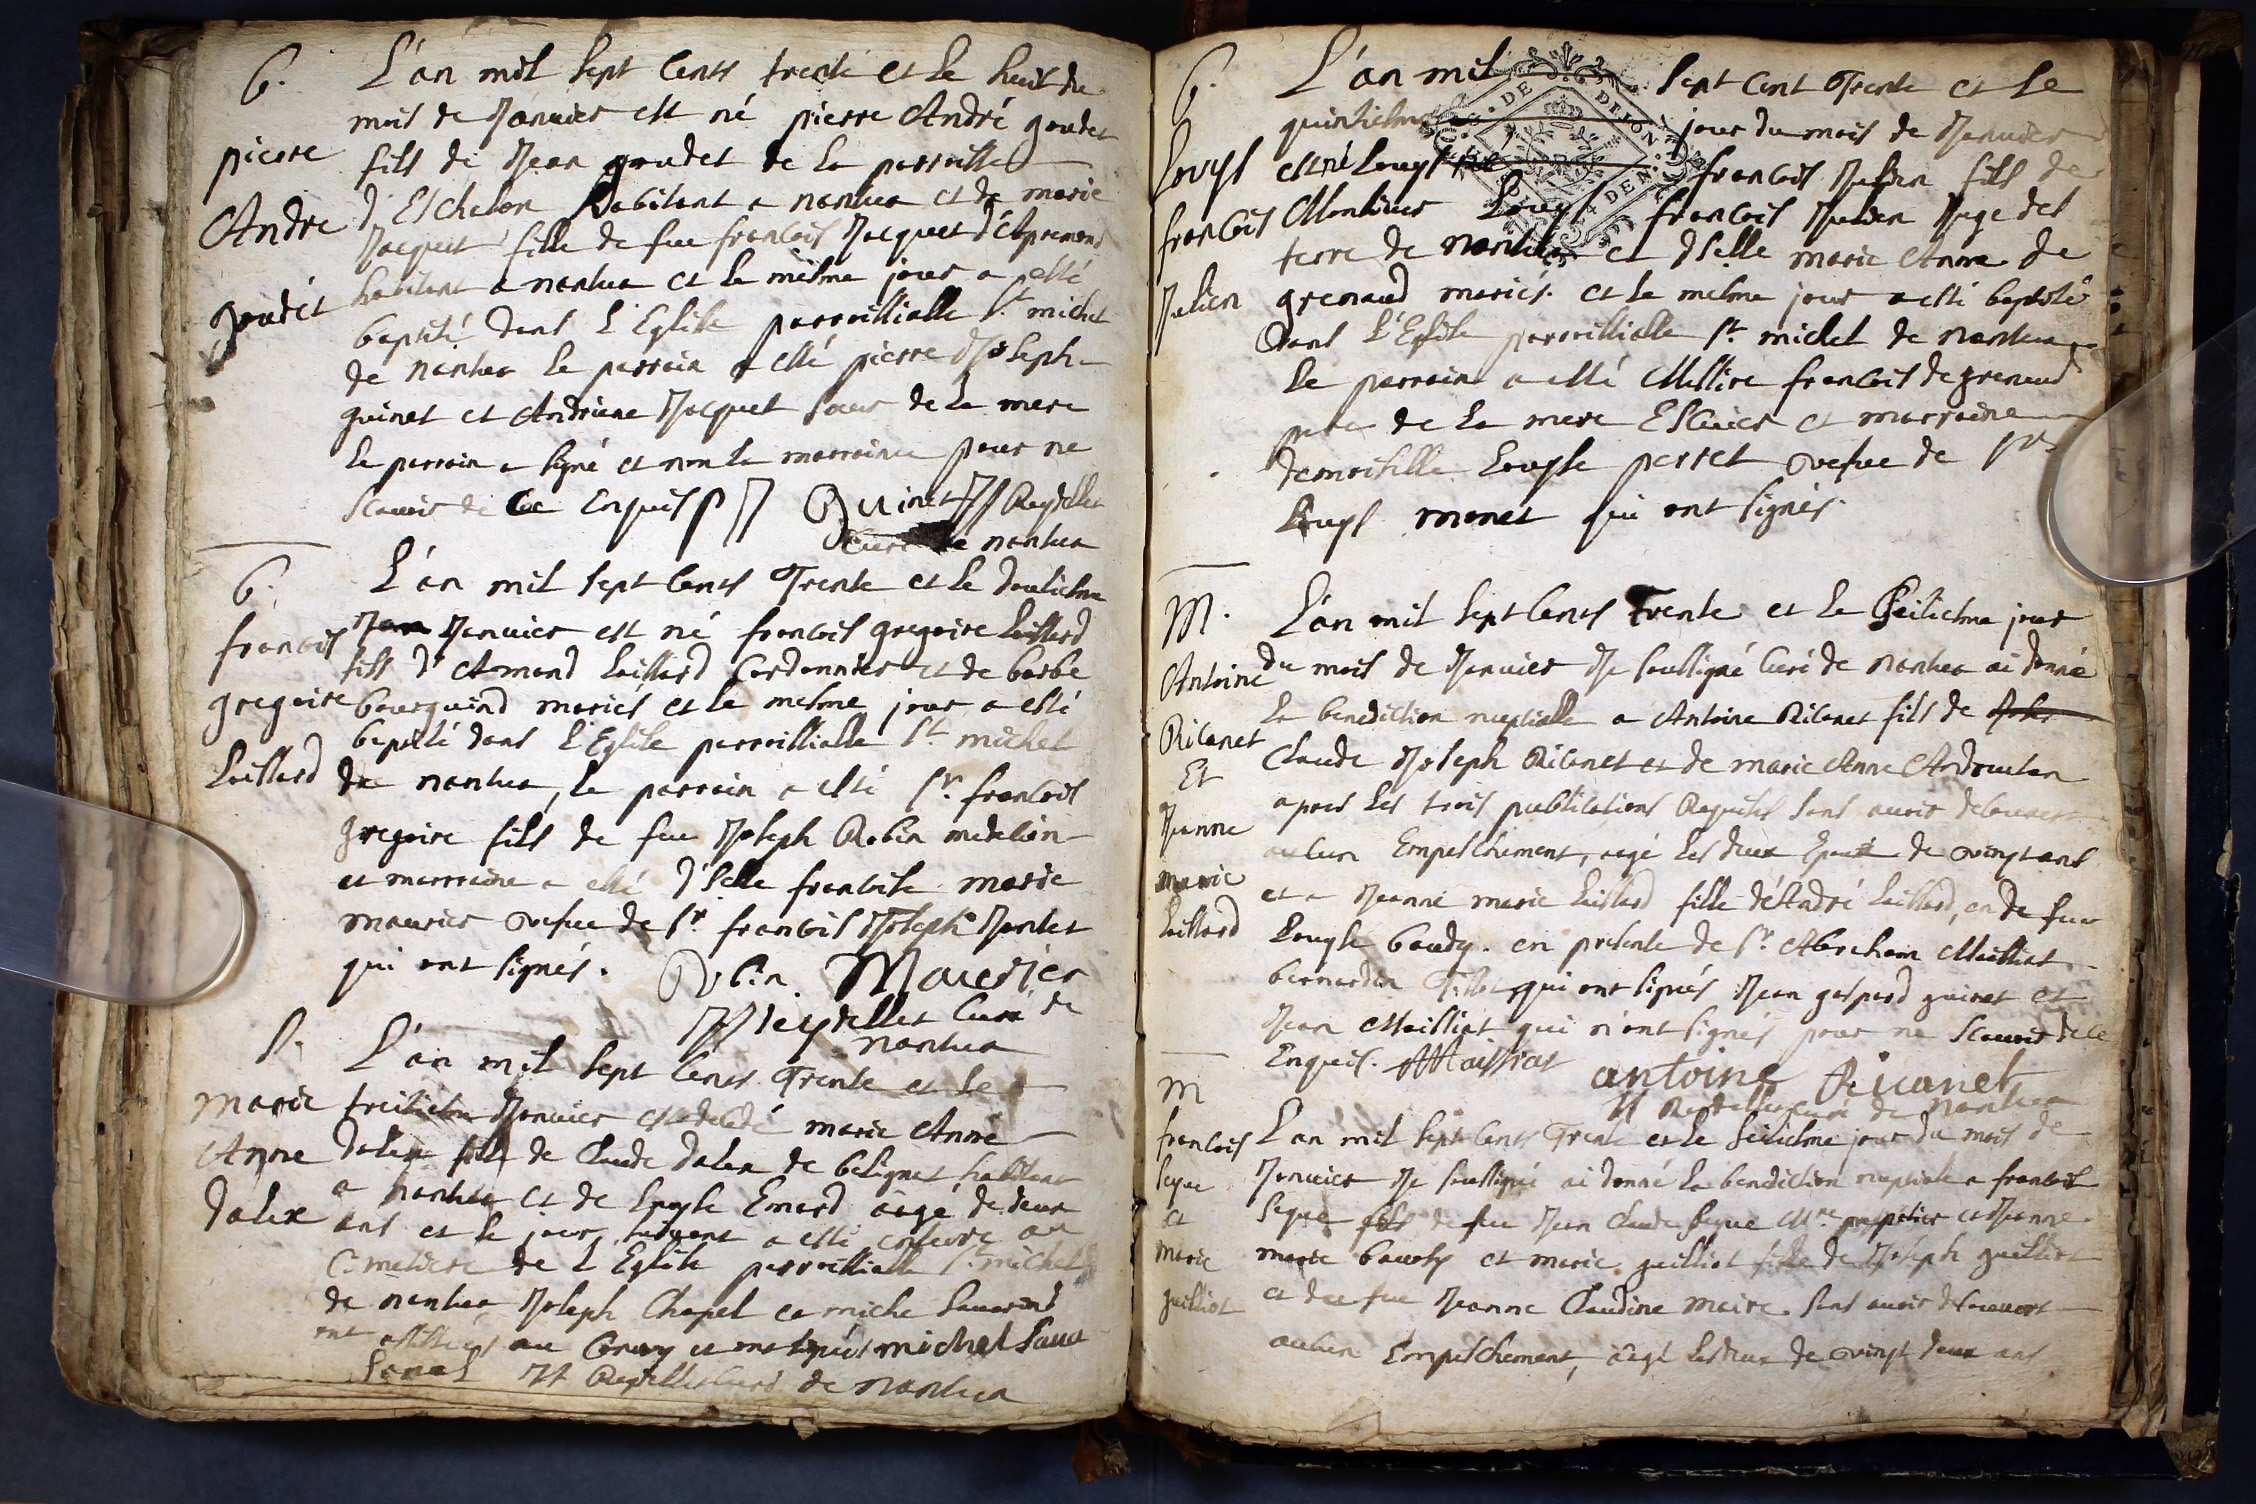 B.
pierre
André
goudet
L'an mil sept cents trente et le huit du
mois de Janvier est né pierre André goudet
fils de Jean goudet de la parroisse
d'Eschalon habitant a nantua et de marie
Jacquet fille de feu francois Jacquet d'
habitant a nantua et le mesme jour a esté
baptisé dans l'Eglise parroissialle St. michel
de nantua le parrain a esté pierre Joseph
guinet et Andriane Jacquet soeur de la mere
le parrain a signé et non la marraine pour ne
scavoir de ce Enquis Guinet Reydellet
curé de nantua
B.
francois
gregoire
L'an mil sept cents Trente et le douziesme
Janvier est né francois gregoire
fils d'Amand Cordonnier et de barbe
bourguind mariés et le mesme jour a esté
baptisé dans l'Eglise parroissialle St. michel
de nantua, le parrain a esté Sr. francois
gregoire fils de feu Joseph Robin medecin
et marraine a esté d'selle francoise marie
maurier vefve de Sr francois Joseph
qui ont signés. Robin Maurier
Reydellet Curé de
nantua
S.
marie
Anne
dalex
L'an mil sept Cents Trente et le
treiziesme Janvier est decedé marie Anne
dalex fille de Claude dalex de belignat habitant
a nantua et de Louyse Emard aagé de deux
ans et le jour suivant a esté enterré au
Cimetiere de l'Eglise parroissialle St. michel
de nantua Joseph Chapel et miche
ont assistés au Convoy et ont signés michel
Reydellet curé de nantua
B.
Louys
francois
Julien
L'an mil Sept Cent Trente et le
quinziesme jour du mois de Janvier
est né Louys francois Julien fils de
Monsieur Louys francois Julien Juge des
terre de nantua et d'selle marie Anne de
grenaud mariés. et le mesme jour a esté baptisé
dans l'Eglise parroissialle St. michel de nantua
le parrain a esté Messire francois de grenaud
pere de la mere Escuier et marraine
demoiselle Louyse perret vefve de Sr
Louys monet qui ont signés.
M.
Antoine
Ricanet
Et
Jeanne
marie
L'an mil sept Cents Trente et le seiziesme jour
du mois de Janvier Je soussigné Curé de nantua ai donné
la benediction nuptialle a Antoine Ricanet fils de
Claude Joseph Ricanet et de marie Anne
apres les trois publications Requises sans avoir decouvert
aucun Empeschement, aagé les deux Epoux de vingt ans
et a Jeanne marie fille d'André, et de feue
Louyse baudy. en presence de Sr. Abraham Maissiat
bernardin qui ont signés Jean gaspard guinet et
Jean Maissiat qui n'ont signés pour ne scavoir de ce
Enquis. Maissiat antoine Ricanet
Reydellet curé de Nantua
M
francois
seque
et
marie
guilliot
L'an mil Sept Cents Trente et le seiziesme jour du mois de
Janvier Je soussigné ai donné la benediction nuptiale a francois
seque fils de feu Jean Claude seque Mre papetier et Jeanne
marie et marie guilliot fille de Joseph guilliot
et de feue Jeanne Claudine maire. sans avoir decouvert
aucun Empeschement, aagé les deux de vingt deux ans